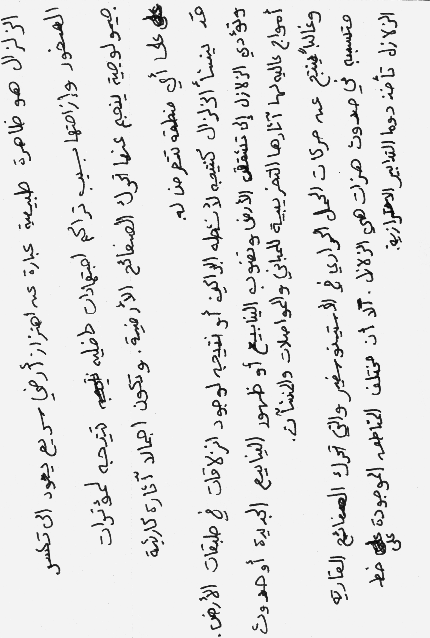 الزلزال هو ظاهرة طبيعية عبارة عن اهتزاز أرضي سريع يعود إلى تكسر
الصخور وإزاحتها بسبب تراكم اجتهادات داخلية نتيجة لمؤثرات
جيولوجية ينجم عنها تحرك الصفائح الأرضية. وتكون اجمالا آثاره كارثية
على أي منطقة تتعرض له.
قد ينشأ الزلزال كنتيجة لأنشطة البراكين أو نتيجة لوجود انزلاقات في طبقات الأرض.
وتؤدي الزلازل إلى تشقق الأرض ونضوب الينابيع أو ظهور الينابيع الجديدة أو حدوث
أمواج عالية لها آثارها التخريبية للمباني والمواصلات والمنشآت.
وغالبا ينتج عن حركات الحمل الحراري في الأستينوسفير والتي تحرك الصفائح القارية
متسببة في حدوث هزات هي الزلازل. الا أن مختلف المناطق الموجودة على خط
الزلازل تأخذ دوما التدابير الاحترازية.